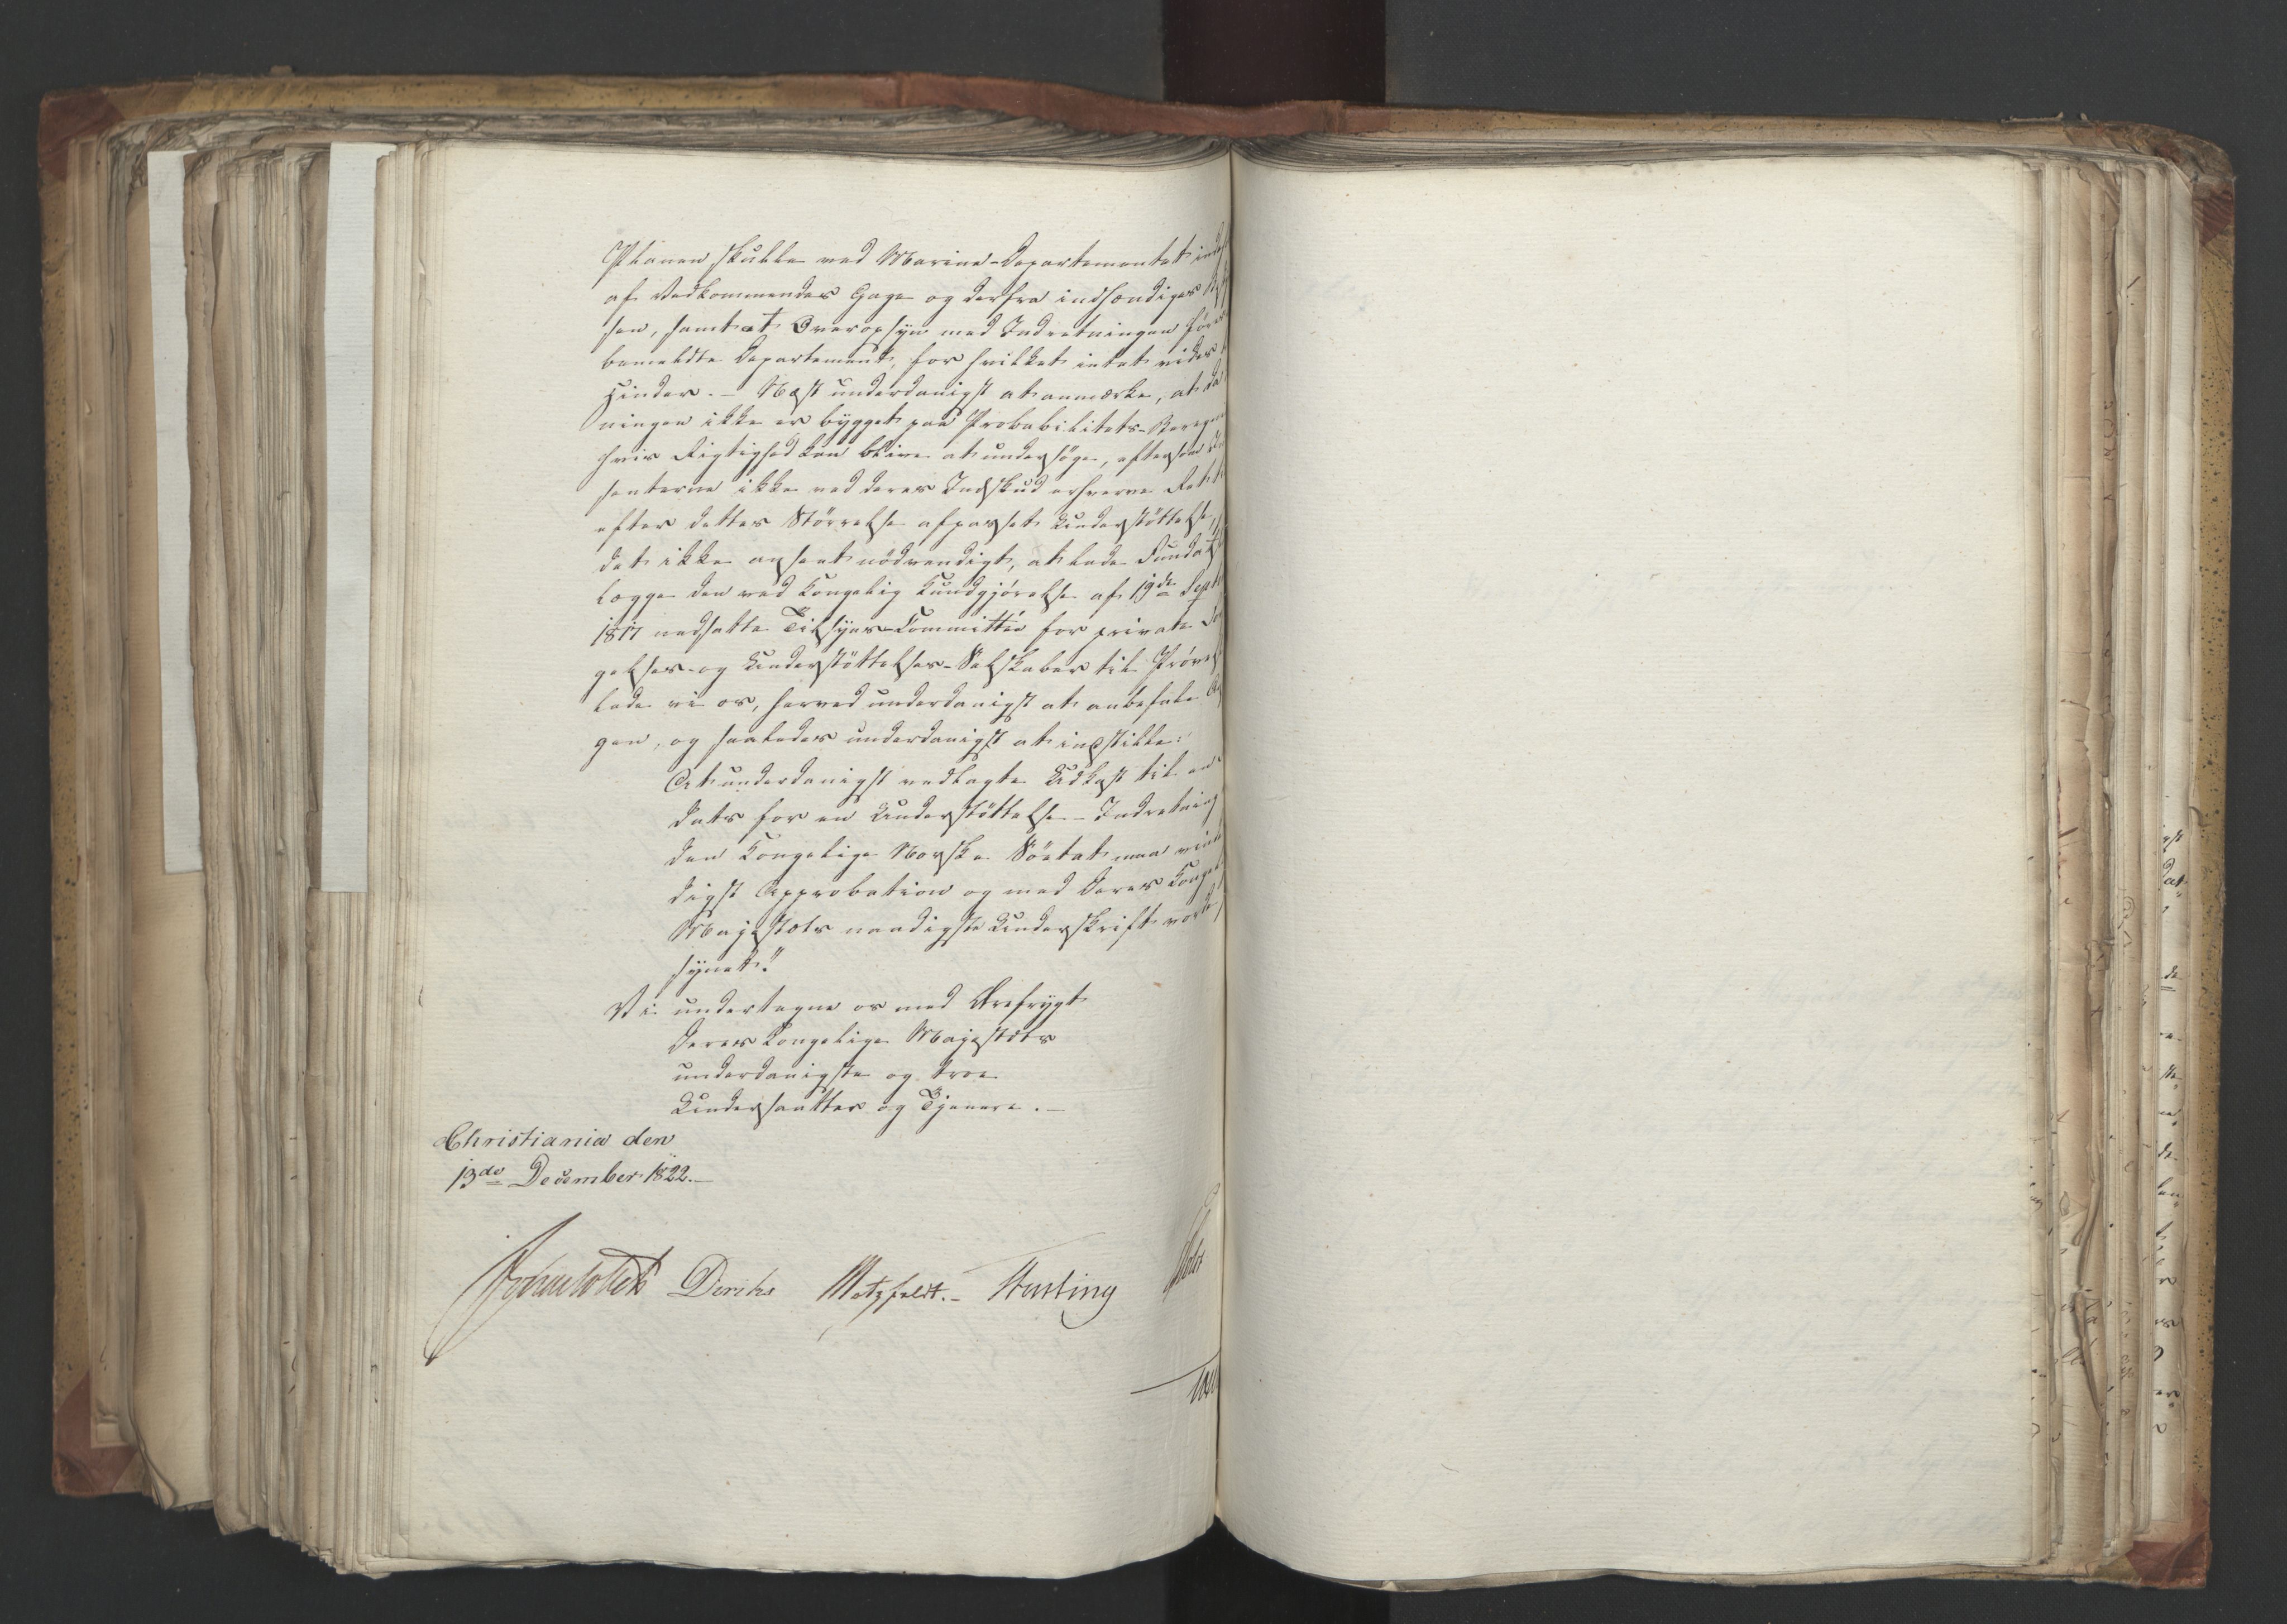 Planen skulle ved Marine-Departementet inde
af Vedkommendes Gage og derfra indsændiges
sen, samt at Overopsyn med Indretningen føres
bemeldte Departement, for hvilket intet vides
Hinder. – Næst underdanigst at anmærke, at
ningen ikke er bygget paa Probabilitets-Beregn
hvis Rigtighed kan blive at undersøge, eftersom
senterne ikke ved deres Indskud erhverve Ret
efter dettes Størrelse afpasset Understøttelse,
det ikke anseet nødvendigt, at lade Fundats
lægge den ved Kongelig Kundgjørelse af 19de Sept
1817 nedsatte Tilsyns-Committée for private
gelses- og Understøttelses-Selskaber til Prøvel
lade vi os, herved underdanigst at anbefale
gen, og saaledes underdanigst at indstille:
At underdanigst vedlagte Udkast til en
dats for en Understøttelse-Indretning
den Kongelige Norske Søetat maa vinde
digst Approbation og med Deres Kongel
Majestæts naadigste Underskrift vorde
synet."
Vi undertegne os med Ærefrygt
Deres Kongelige Majestæts
underdanigste og troe
Undersaatter og Tjenere. –
Christiania den
13de December 1822. –
Diriks Motzfeldt. –